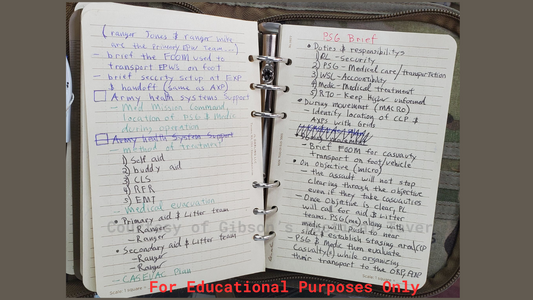 (ranger Jones & ranger Mike
are the Primary EPW Team...)
brief the FOOM used to
transport EPWs on foot
- brief security setup at EXP
& handoff (same as AXP)
Army health Systems Support
- Med Mission Command
location of PSG & Medic
during operation
Army Health System Support
- method of treatment
1) Self aid
2) buddy aid
3) CLS
4) RFR
5) EMT
- Medical evacuation
• Primary aid & Litter team
- Ranger
- Ranger
• Secondary aid & Litter team
- Ranger
- Ranger
- CASEVAC Plan
PSG Brief
• Duties & responsibilitys
1) PL - Security
2) PSG - Medical care/transportation
3) WSL - Accountability
4) Medic - Medical treatment
5) RTO - Keep higher informed
• During movement (MACRO)
- Identify location of CCP &
AXPs with Grids
- Brief FOOM for casualty
transport on foot/vehicle
• On objective (micro)
- the assault will not stop
clearing through the objective
even if they take casualties
- Once Objective is clear, PL
will call for aid & litter
teams. PSG(me) along with
medic will push to near
side & establish staging area/CCP
- PSG & Medic then evaluate
Casualty(s) while organizing
their transport to the CXP, EXP
Courtesy of Gibson's
For Educational Purposes Only